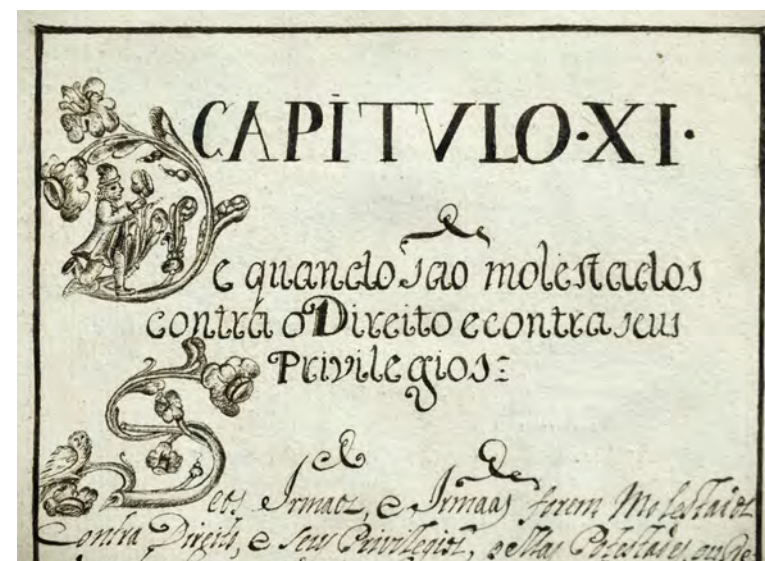 CAPITVLO·XI·
De quando sao molestados
contra o Direito e contra seus
Privilegios:
Se os Irmaos, e Irmaas forem Molestados
Contra Direito, e seus Privilegios, pellas Potestades, ou